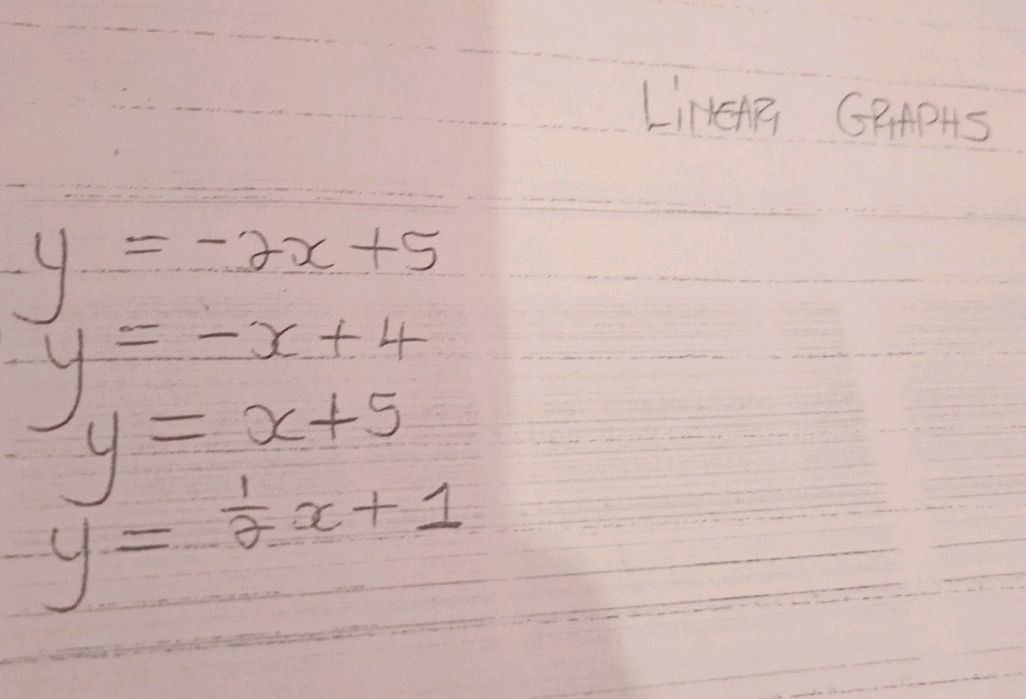 LINEAR GRAPHS
y = -2x + 5
y = -x + 4
y = x + 5
y = 1/2 x + 1